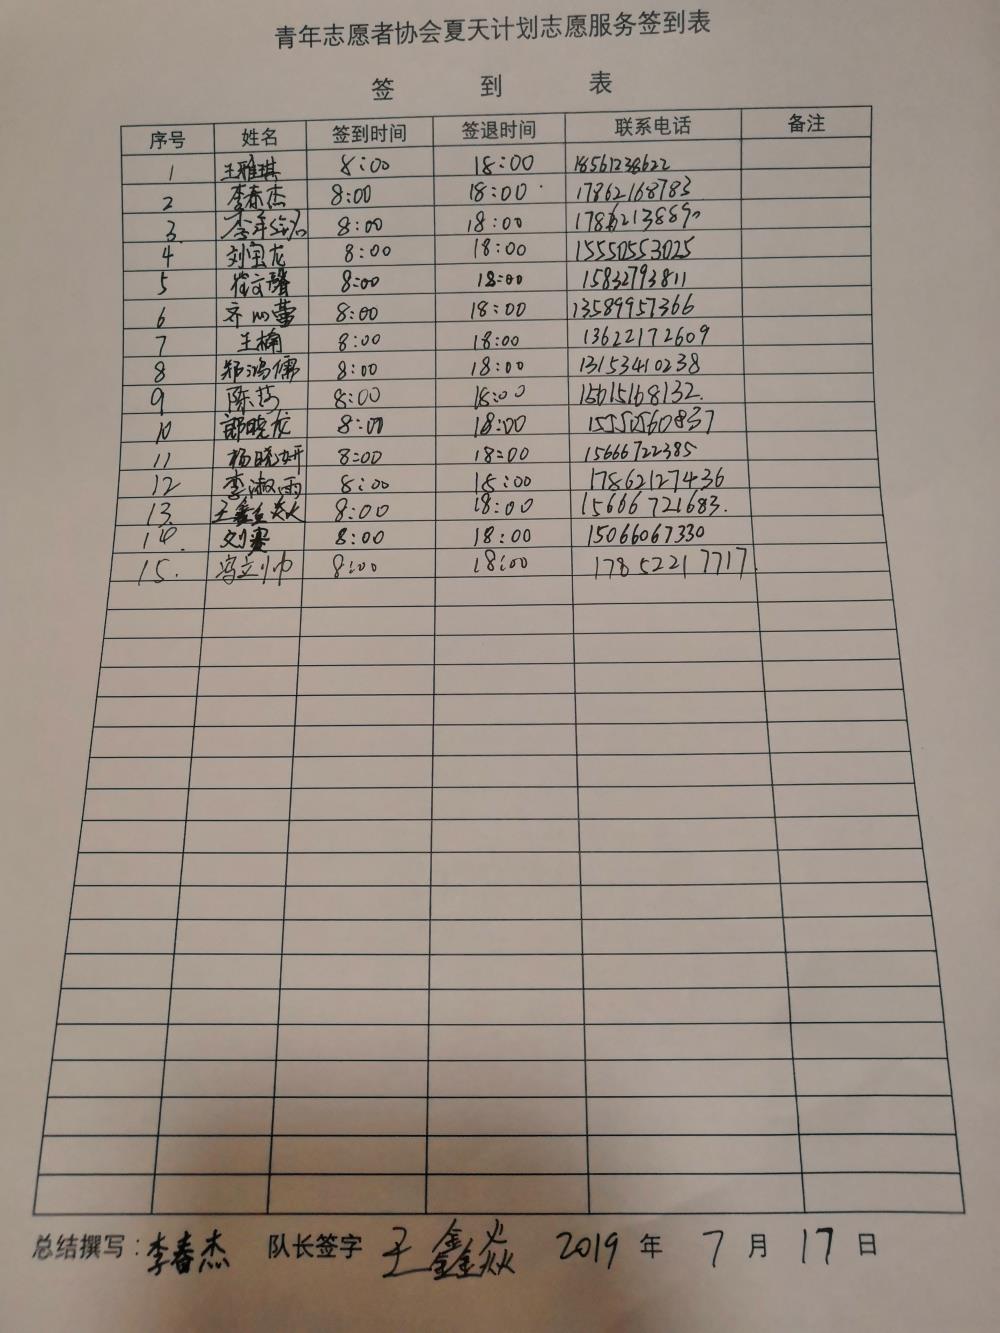 青年志愿者协会夏天计划志愿服务签到表
签 到 表
序号 姓名 签到时间 签退时间 联系电话 备注
1 王雅琪 8:00 18:00 18561238622
2 李春杰 8:00 18:00 17862168783
3. 8:00 18:00
4 刘宝龙 8:00 18:00 15550553025
5 崔文馨 8:00 18:00 15832793811
6 8:00 18:00 13589957366
7 王楠 8:00 18:00 13622172609
8 郑鸿儒 8:00 18:00 13153410238
9 陈莎 8:00 18:00 15615168132.
10 郭晓龙 8:00 18:00 15550560837
11 杨晓妍 8:00 18:00 15666722385
12 李淑雨 8:00 18:00 17862127436
13. 王鑫焱 8:00 18:00 15666721683.
14. 8:00 18:00 15066067330
15. 冯立帅 8:00 18:00 17852217717.
总结撰写：李春杰 队长签字 王鑫焱 2019 年 7 月 17 日